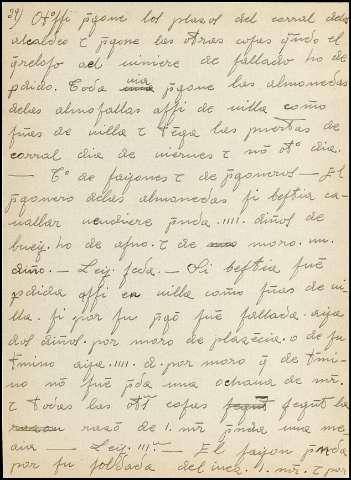 29) Otossi p̄gone los plazos del corral dela
alcaldeo τ p̄gone las otras cosas q̄ndo el
p̄relofo ael viniere de fallado ho de
p̄dido. Toda via p̄gone las almonedas
delas almofallas assi de villa como
fu̅as de villa τ tēga las puertas de
corral dia de viernes τ nō oto dia.
— To de faiyones τ de p̄goneros — El
p̄gonero delas almonedas si bestia ca-
uallar vendiere p̄nda .IIII. din̄os de
buey. ho de asno. τ de moro. un.
din̄o. — Ley. scda. — Si bestia fue
p̄dida assi en villa como fu̅as de vi-
lla. si por su p̄gō fue fallada. aya
dos din̄os. por moro de plazēcia. o de su
t̄mino aya .IIII. d. por moro q̄ de t̄mi-
no nō fue p̄da una ochava de mr̄.
τ todas las otas cosas segūt la
razō de .I. mr̄ p̄nda una me
aia — Ley. IIIa. — El sayon p̄nda
por su soldada del .I. mr̄. τ por